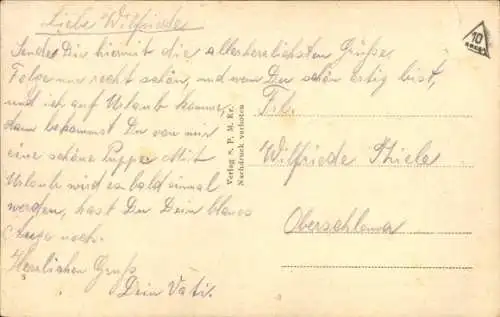 Liebe Wilfriede
Sende Dir hiermit die allerherzlichsten Grüße,
Folge nur recht schön, und wenn Du schön artig bist,
und ich auf Urlaub komme,
dann bekommst Du von mir
eine schöne Puppe. Mit
Urlaub wird es bald einmal
werden, hast Du Dein blaues
noch.
Herzlichen Gruß
Dein Vati.
Verlag S. P. M. Kr.
Nachdruck verboten
10
Frl.
Wilfriede Thiele
Oberschlema